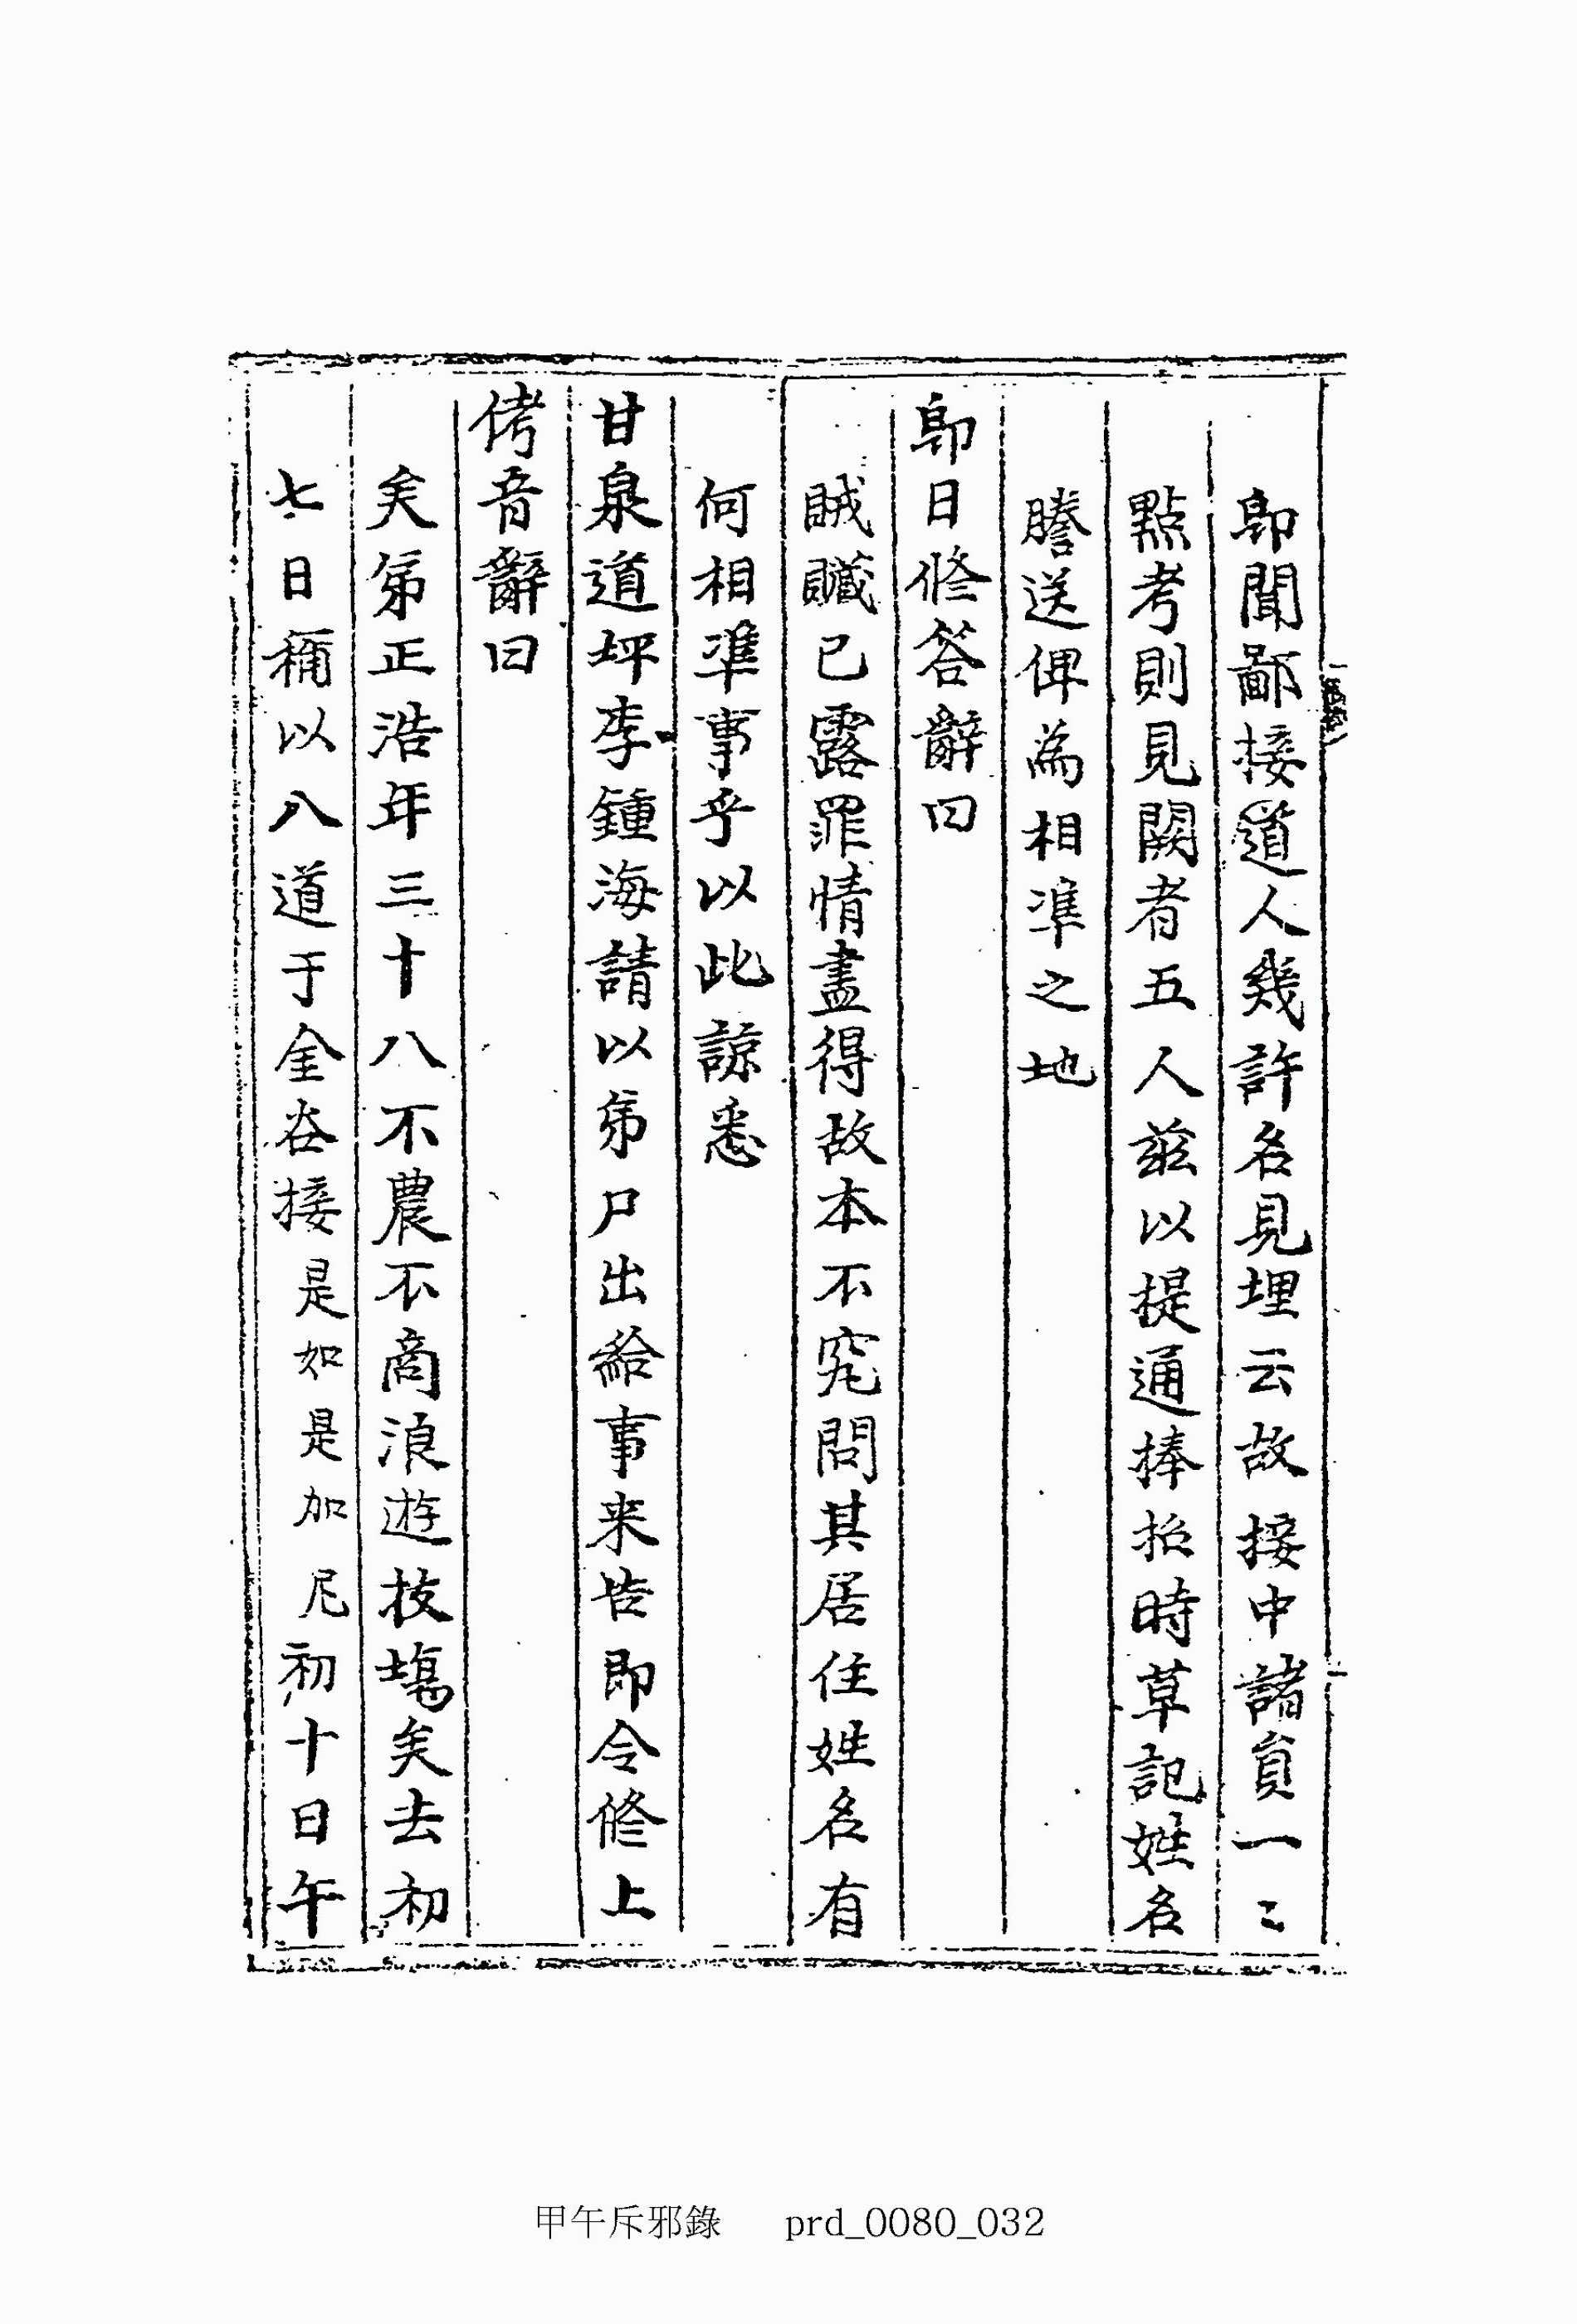 卽聞鄙接道人幾許名見埋云故接中諸員一〻
點考則見闕者五人玆以提通捧招時草記姓名
謄送俾爲相準之地
卽日修答辭曰
賊贓已露罪情盡得故本不究問其居住姓名有
何相準事乎以此諒悉
甘泉道坪李鍾海請以弟尸出給事来告即令修上
侤音辭曰
矣弟正浩年三十八不農不商浪遊技塲矣去初
七日稱以八道于金谷接是如是加尼初十日午
甲午斥邪錄 prd_0080_032